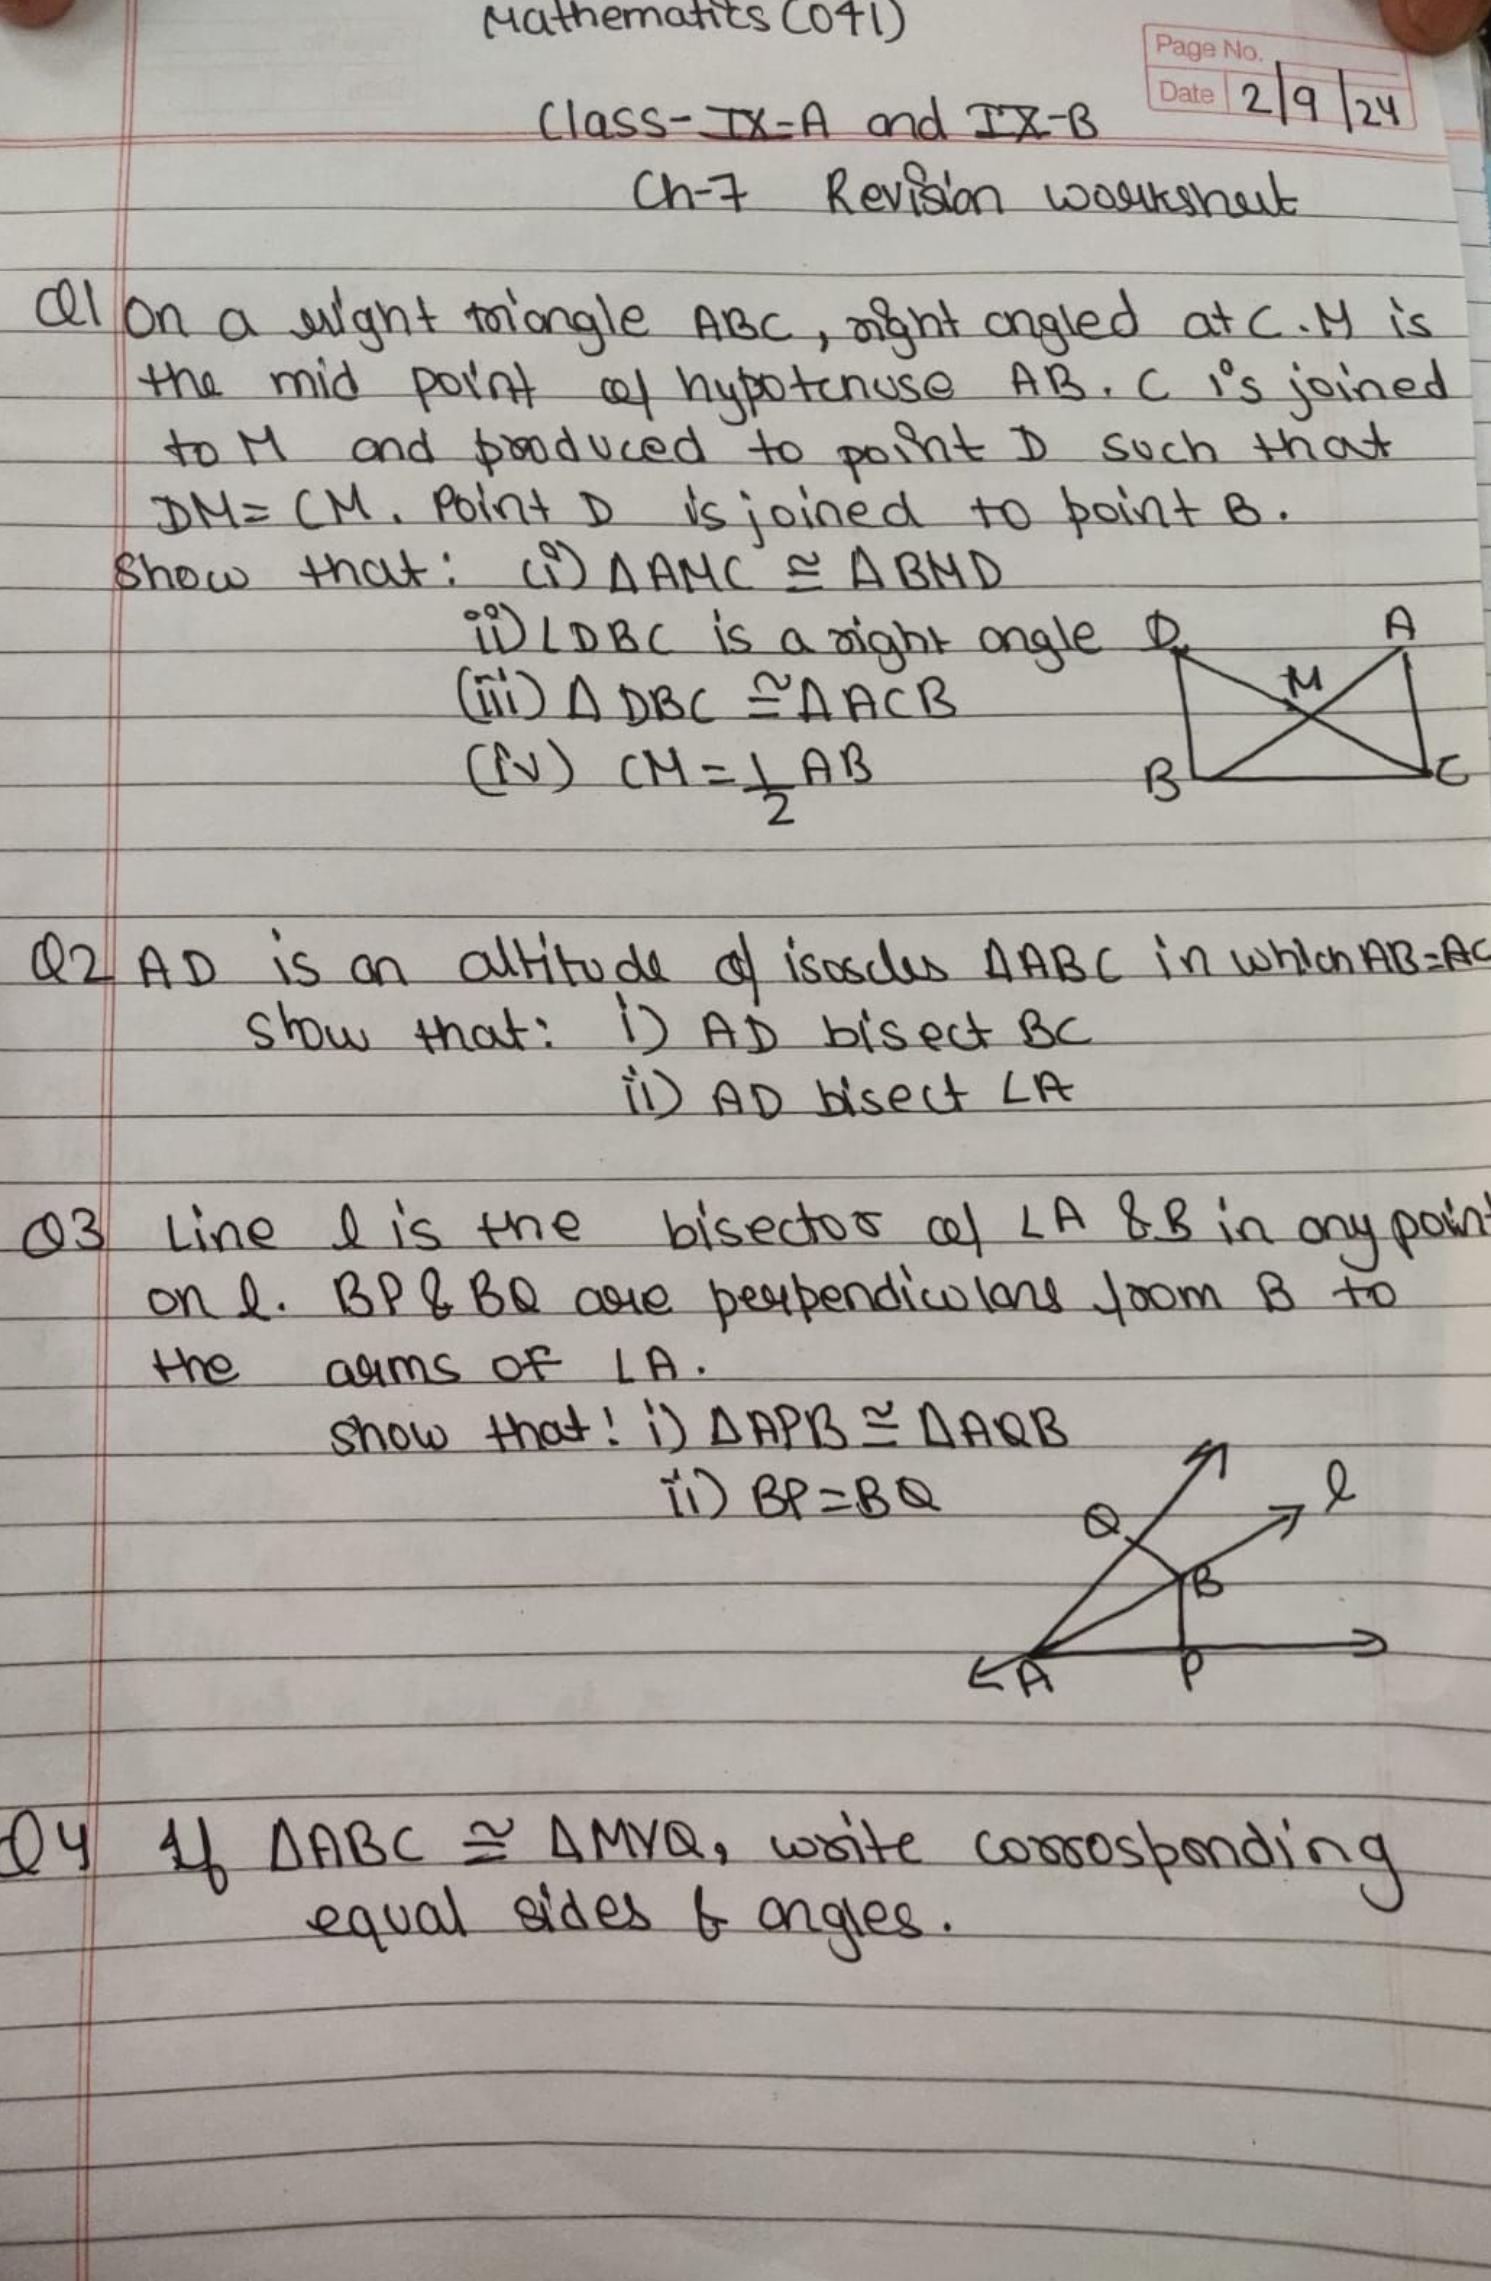 Mathematics (041)
Page No.
Date 2/9/24
Class-IX-A and IX-B
Ch-7 Revision worksheet
Q1 On a right triangle ABC, right angled at C. M is
the mid point of hypotenuse AB. C is joined
to M and produced to point D such that
DM = CM. Point D is joined to point B.
Show that: (i) ΔAMC ≅ ΔBMD
ii) ∠DBC is a right angle
(iii) Δ DBC ≅ ΔACB
(iv) CM = 1/2 AB
D A
M
B C
Q2 AD is an altitude of isoscles ΔABC in which AB=AC
show that: i) AD bisect BC
ii) AD bisect ∠A
Q3 Line l is the bisector of ∠A & B in any point
on l. BP & BQ are perpendiculars from B to
the arms of ∠A.
show that! i) ΔAPB ≅ ΔAQB
ii) BP = BQ
l
Q
B
A P
Q4 If ΔABC ≅ ΔMYQ, write corrosponding
equal sides & angles.